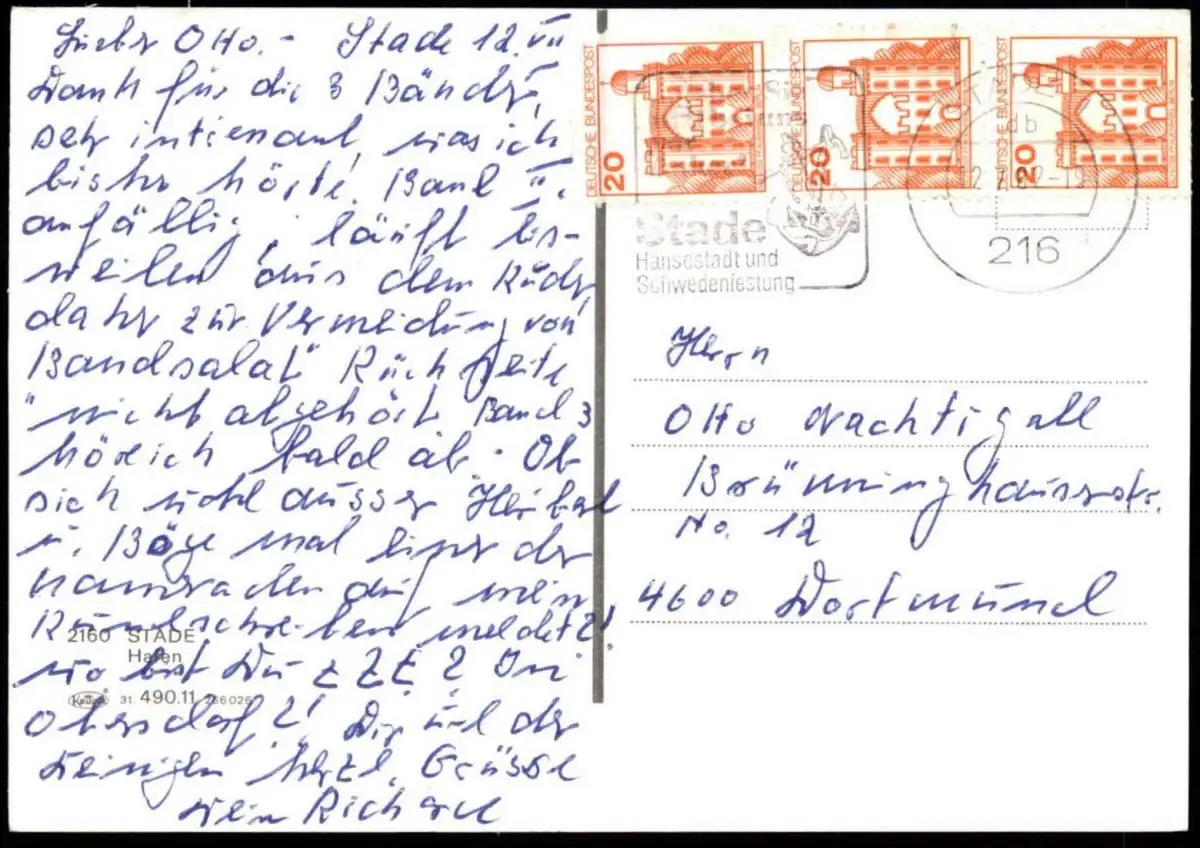 Lieber Otto. - Stade 12. VII
Dank für die 3 Bänder,
sehr interessant, was ich
bisher hörte! Band II.
anfällig, läuft bis-
weilen aus dem Ruder,
daher zur Vermeidung von
Bandsalat" Rückseite
"nicht abgehört. Band 3
höre ich bald ab. Ob
sich wohl ausser Herbert
u. Böge mal einer der
Kameraden auf mein
Rundschreiben meldet?!
Wo bist Du z Zt? In
Oberstdorf?! Dir und der
Deinigen herzl. Grüsse
Dein Richard
2160 STADE
Hafen
Krüger
31. 490.11 266026
DEUTSCHE BUNDESPOST
20
DEUTSCHE BUNDESPOST
20
DEUTSCHE BUNDESPOST
20
Stade
Hansestadt und
Schwedenfestung
db
216
Herrn
Otto Nachtigall
Brünninghauserstr.
No. 12
4600 Dortmund